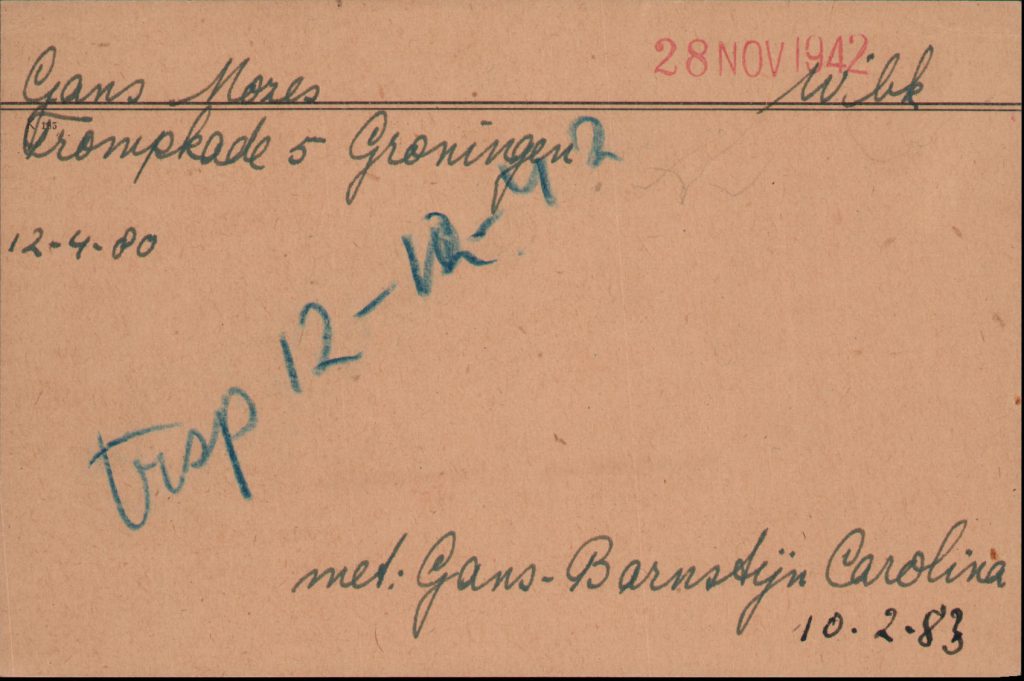 28 NOV 1942
Gans Mozes Wibk
Trompkade 5 Groningen
12-4-80
trsp 12-12-42
met: Gans-Barnstijn Carolina
10.2-83